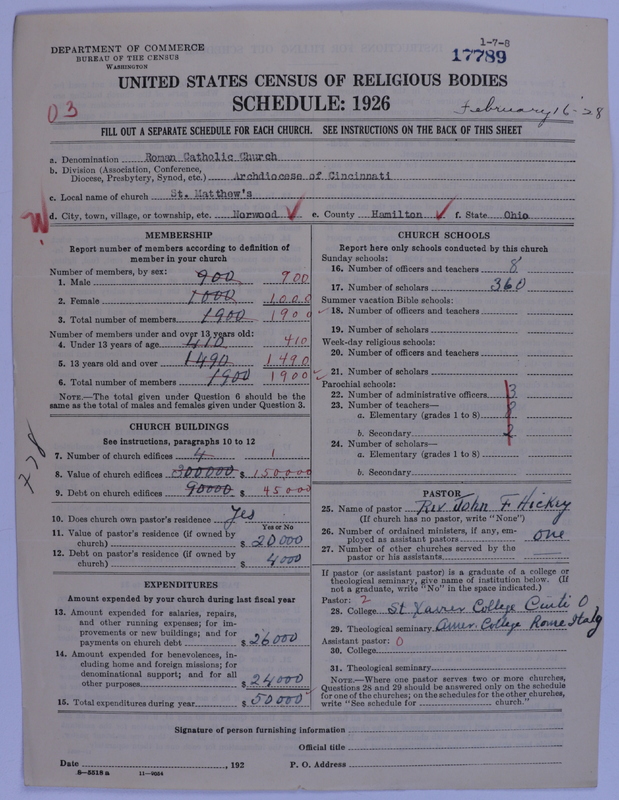 DEPARTMENT OF COMMERCE
BUREAU OF THE CENSUS
WASHINGTON
1-7-8
17789
UNITED STATES CENSUS OF RELIGIOUS BODIES
SCHEDULE: 1926
03
February 16-28
FILL OUT A SEPARATE SCHEDULE FOR EACH CHURCH. SEE INSTRUCTIONS ON THE BACK OF THIS SHEET
a. Denomination Roman Catholic Church
b. Division (Association, Conference,
Diocese, Presbytery, Synod, etc.) Archdiocese of Cincinnati
c. Local name of church St. Matthew's
W
d. City, town, village, or township, etc. Norwood e. County Hamilton f. State Ohio
MEMBERSHIP
Report number of members according to definition of
member in your church
Number of members, by sex:
1. Male 900 900
2. Female 1000 1000
3. Total number of members 1900 1900
Number of members under and over 13 years old:
4. Under 13 years of age 410 410
5. 13 years old and over 1490 1490
6. Total number of members 1900 1900
NOTE.—The total given under Question 6 should be
same as the total of males and females given under Question 3.
CHURCH BUILDINGS
See instructions, paragraphs 10 to 12
738
7. Number of church edifices 4 1
8. Value of church edifices 300000 $ 150000
9. Debt on church edifices 90000 $ 45000
10. Does church own pastor's residence? yes
Yes or No
11. Value of pastor's residence (if owned by
church) $ 20000
12. Debt on pastor's residence (if owned by
church) $ 4000
EXPENDITURES
Amount expended by your church during last fiscal year
13. Amount expended for salaries, repairs,
and other running expenses; for im-
provements or new buildings; and for
payments on church debt $ 26000
14. Amount expended for benevolences, in-
cluding home and foreign missions; for
denominational support; and for all
other purposes $ 24000
15. Total expenditures during year $ 50000
CHURCH SCHOOLS
Report here only schools conducted by this church
Sunday schools:
16. Number of officers and teachers 8
17. Number of scholars 360
Summer vacation Bible schools:
18. Number of officers and teachers
19. Number of scholars
Week-day religious schools:
20. Number of officers and teachers
21. Number of scholars
Parochial schools:
22. Number of administrative officers 3
23. Number of teachers—
a. Elementary (grades 1 to 8) 8
b. Secondary 2
24. Number of scholars—
a. Elementary (grades 1 to 8)
b. Secondary
PASTOR
25. Name of pastor Rev John F Hickey
(If church has no pastor, write "None")
26. Number of ordained ministers, if any, em-
ployed as assistant pastors one
27. Number of other churches served by the
pastor or his assistants
If pastor (or assistant pastor) is a graduate of a college or
theological seminary, give name of institution below. (If
not a graduate, write "No" in the space indicated.)
Pastor: 2
28. College St Xavier College Cinti O
29. Theological seminary Amer. College Rome Italy
Assistant pastor: 0
30. College
31. Theological seminary
NOTE.—Where one pastor serves two or more churches,
Questions 28 and 29 should be answered only on the schedule
for one of the churches; on the schedules for the other churches,
write "See schedule for church."
Signature of person furnishing information
Official title
Date , 192 P. O. Address
8—5518 a 11—9054